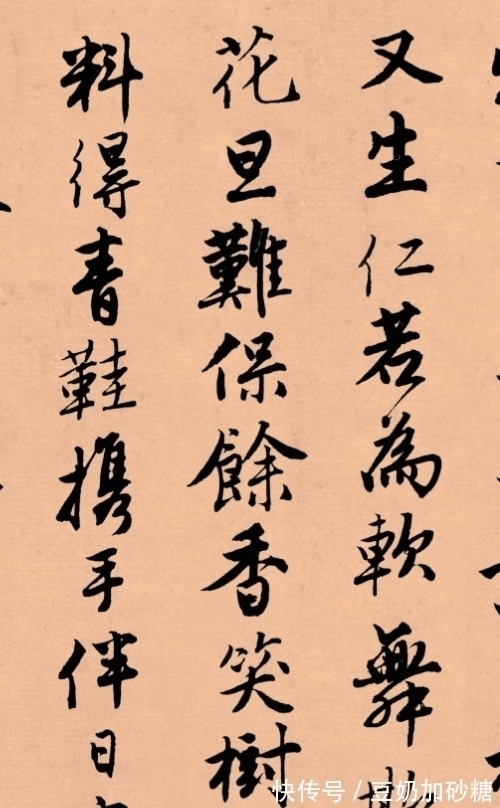 又生仁若為軟舞
花旦難保餘香笑樹
料得青鞋携手伴日
快传号/豆奶加砂糖